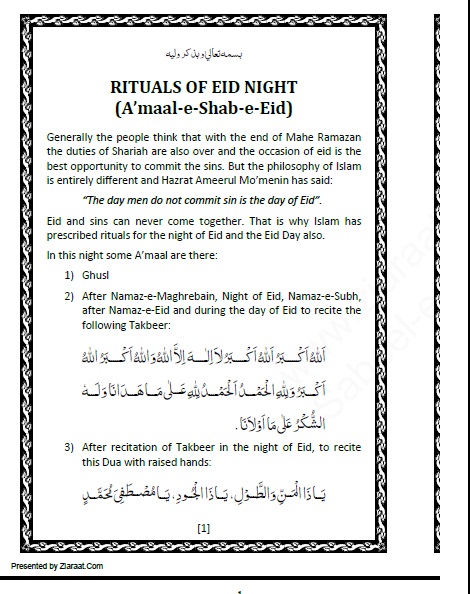 بسمہ تعالیٰ و بذکر ولیہ
RITUALS OF EID NIGHT
(A’maal-e-Shab-e-Eid)
Generally the people think that with the end of Mahe Ramazan
the duties of Shariah are also over and the occasion of eid is the
best opportunity to commit the sins. But the philosophy of Islam
is entirely different and Hazrat Ameerul Mo’menin has said:
“The day men do not commit sin is the day of Eid”.
Eid and sins can never come together. That is why Islam has
prescribed rituals for the night of Eid and the Eid Day also.
In this night some A’maal are there:
1) Ghusl
2) After Namaz-e-Maghrebain, Night of Eid, Namaz-e-Subh,
after Namaz-e-Eid and during the day of Eid to recite the
following Takbeer:
اَللهُ اَكْبَرُ اَللهُ اَكْبَرُ لَا اِلٰهَ اِلَّا اللهُ وَاللهُ اَكْبَرُ اَللهُ
اَكْبَرُ وَلِلّٰهِ الْحَمْدُ اَلْحَمْدُ لِلّٰهِ عَلٰى مَا هَدَانَا وَلَهُ
الشُّكْرُ عَلٰى مَا اَوْلَانَا.
3) After recitation of Takbeer in the night of Eid, to recite
this Dua with raised hands:
يَا ذَا الْمَنِّ وَالطَّوْلِ، يَا ذَا الْجُودِ، يَا مُصْطَفِيَ مُحَمَّدٍ
[1]
Presented by Ziaraat.Com